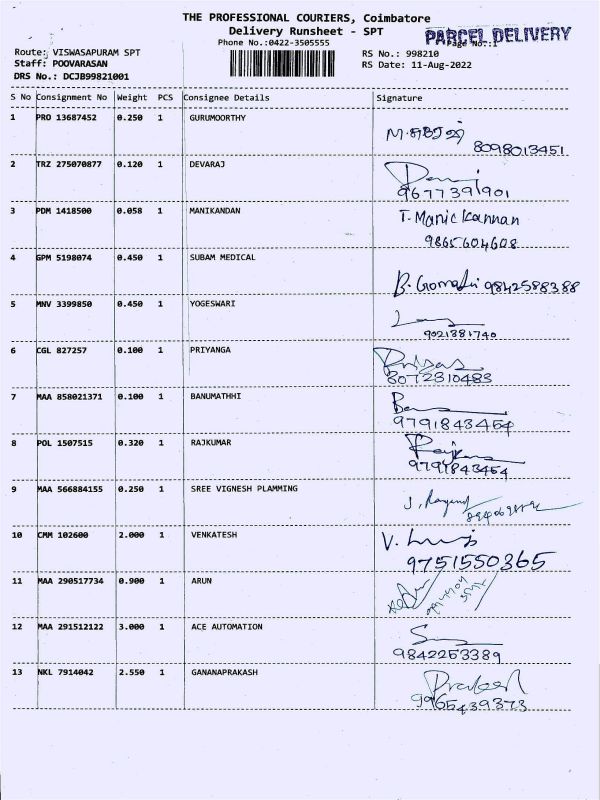 THE PROFESSIONAL COURIERS, Coimbatore
Delivery Runsheet - SPT
PARCEL DELIVERY
Phone No.:0422-3505555
Page No.:1
Route: VISWASAPURAM SPT
RS No.: 998210
Staff: POOVARASAN
RS Date: 11-Aug-2022
DRS No.: DCJB99821001
S No Consignment No Weight PCS Consignee Details Signature
1 PRO 13687452 0.250 1 GURUMOORTHY
8098013451
2 TRZ 275070877 0.120 1 DEVARAJ
9677391901
3 PDM 1418500 0.058 1 MANIKANDAN T. Manickannan
9865604608
4 GPM 5198074 0.450 1 SUBAM MEDICAL
B. Gomathi 9842588388
5 MNV 3399850 0.450 1 YOGESWARI
9021881740
6 CGL 827257 0.100 1 PRIYANGA
8072310483
7 MAA 858021371 0.100 1 BANUMATHHI
9791843454
8 POL 1507515 0.320 1 RAJKUMAR
9791843454
9 MAA 566884155 0.250 1 SREE VIGNESH PLAMMING
10 CMM 102600 2.000 1 VENKATESH
9751550365
11 MAA 290517734 0.900 1 ARUN
12 MAA 291512122 3.000 1 ACE AUTOMATION
9842253389
13 NKL 7914042 2.550 1 GANANAPRAKASH
9965439373